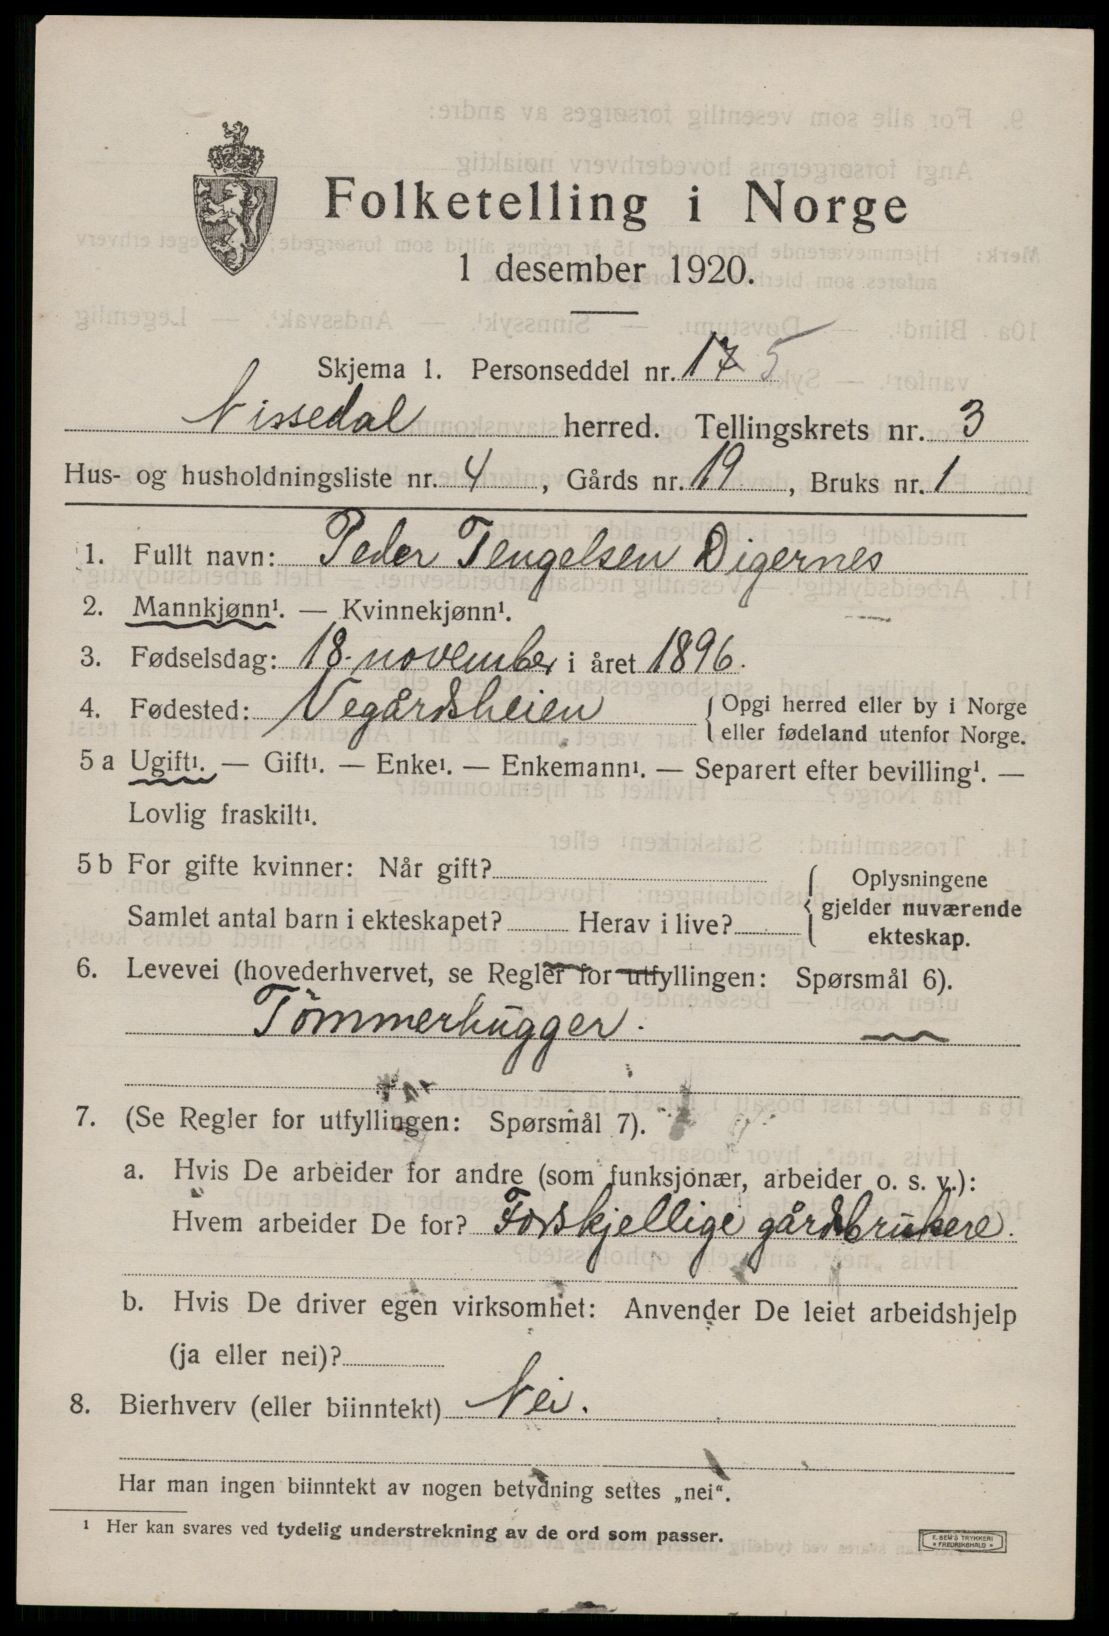 Folketelling i Norge
1 desember 1920.
Skjema 1. Personseddel nr. 17 5
Nissedal herred. Tellingskrets nr. 3
Hus- og husholdningsliste nr. 4, Gårds nr. 19, Bruks nr. 1
1. Fullt navn: Peder Tengelsen Digernes
2. Mannkjønn¹. — Kvinnekjønn¹.
3. Fødselsdag: 18. november i året 1896.
4. Fødested: Vegårdsheien { Opgi herred eller by i Norge
eller fødeland utenfor Norge.
5 a Ugift¹. — Gift¹. — Enke¹. — Enkemann¹. — Separert efter bevilling¹. —
Lovlig fraskilt¹.
5 b For gifte kvinner: Når gift?
Samlet antal barn i ekteskapet? Herav i live?
{ Oplysningene
gjelder nuværende
ekteskap.
6. Levevei (hovederhvervet, se Regler for utfyllingen: Spørsmål 6).
Tömmerhugger.
7. (Se Regler for utfyllingen: Spørsmål 7).
a. Hvis De arbeider for andre (som funksjonær, arbeider o. s. v.):
Hvem arbeider De for? Forskjellige gårdbrukere.
b. Hvis De driver egen virksomhet: Anvender De leiet arbeidshjelp
(ja eller nei)?
8. Bierhverv (eller biinntekt) Nei.
Har man ingen biinntekt av nogen betydning settes „nei“.
¹ Her kan svares ved tydelig understrekning av de ord som passer.
E. SEM'S TRYKKERI
FREDRIKSHALD